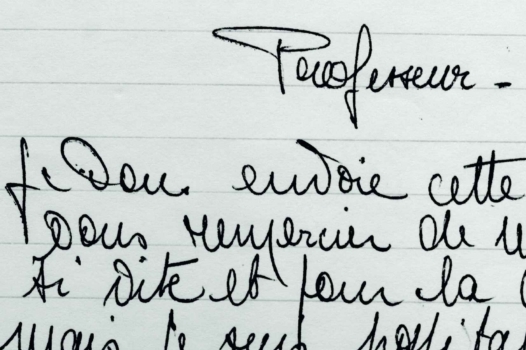 Professeur -
Je vous envoie cette
pour remercier de
si vite et pour la
mais je suis